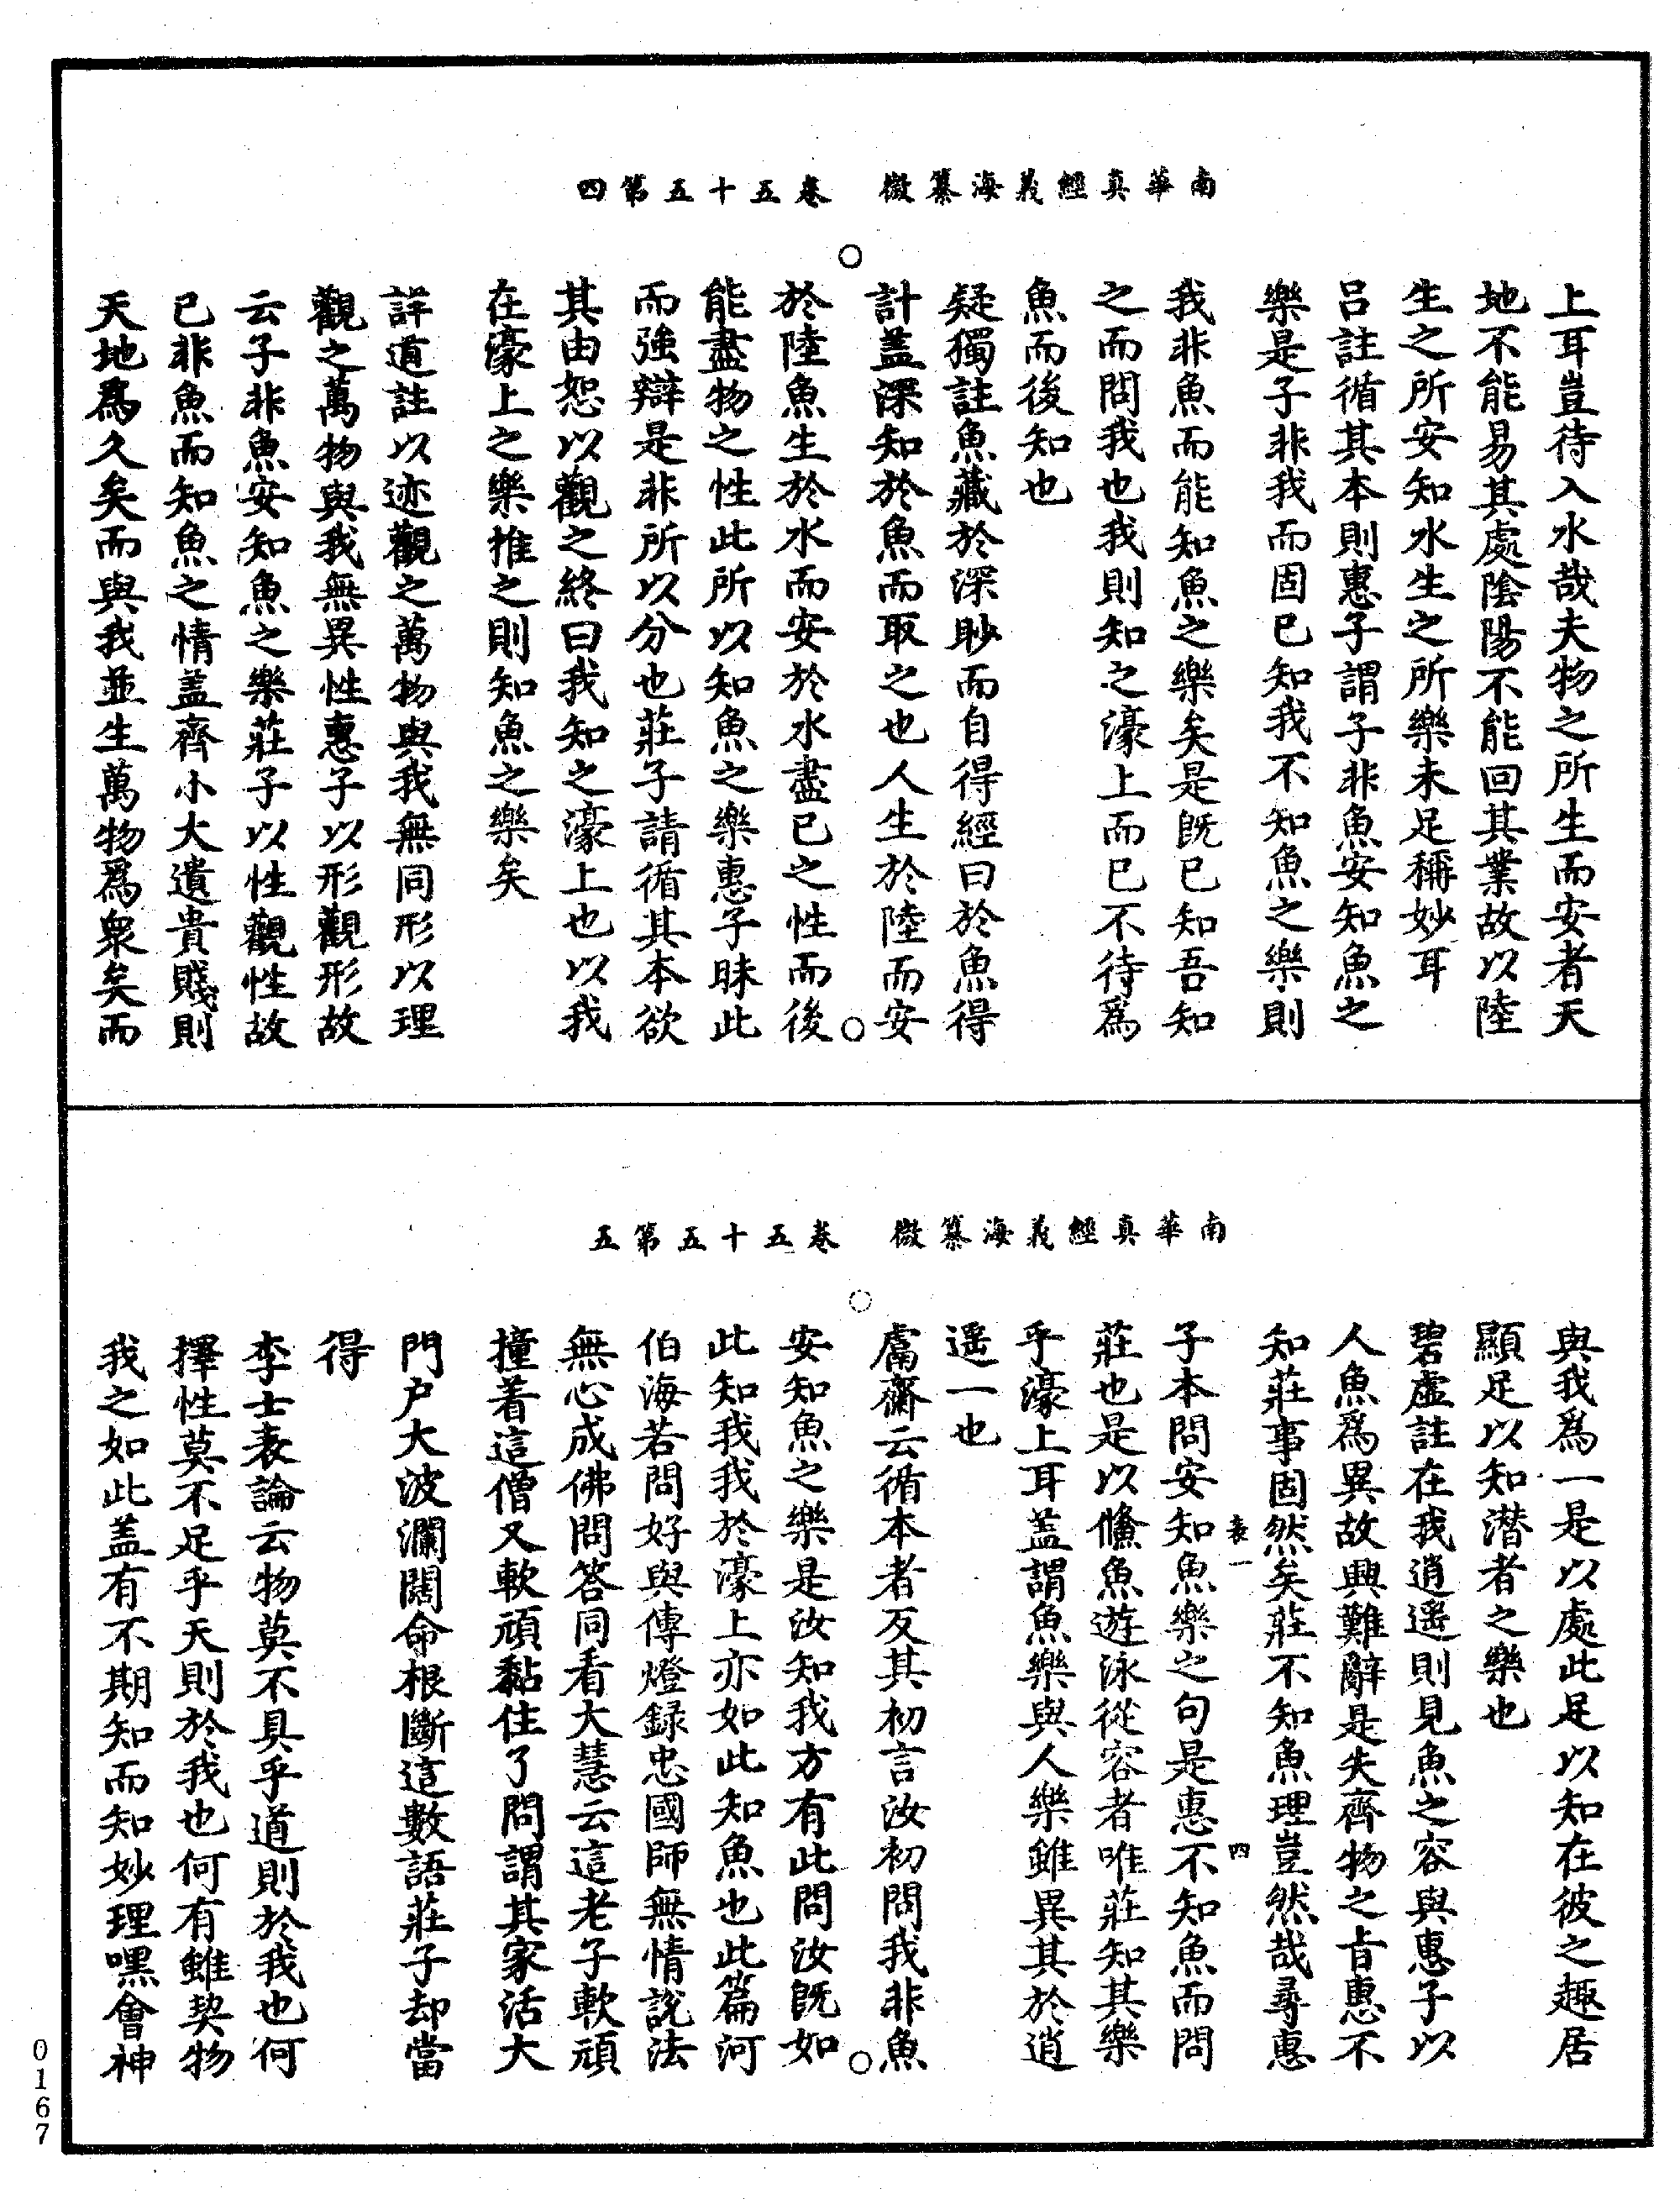 南華真經義海纂微　卷五十五第四
上耳豈待入水哉夫物之所生而安者天
地不能易其處陰陽不能回其業故以陸
生之所安知水生之所樂未足稱妙耳
呂註循其本則惠子謂子非魚安知魚之
樂是子非我而固已知我不知魚之樂則
我非魚而能知魚之樂矣是旣已知吾知
之而問我也我則知之濠上而已不待爲
魚而後知也
疑獨註魚藏於深眇而自得經曰於魚得
計蓋深知於魚而取之也人生於陸而安
於陸魚生於水而安於水盡已之性而後
能盡物之性此所以知魚之樂惠子昧此
而強辯是非所以分也莊子請循其本欲
其由恕以觀之終曰我知之濠上也以我
在濠上之樂推之則知魚之樂矣
詳道註以迹觀之萬物與我無同形以理
觀之萬物與我無異性惠子以形觀形故
云子非魚安知魚之樂莊子以性觀性故
已非魚而知魚之情蓋齊小大遺貴賤則
天地爲久矣而與我並生萬物爲衆矣而
南華真經義海纂微　卷五十五第五
與我爲一是以處此足以知在彼之趣居
顯足以知潛者之樂也
碧虛註在我逍遙則見魚之容與惠子以
人魚爲異故興難辭是失齊物之旨惠不
知莊事固然矣莊不知魚理豈然哉尋惠
表一　四
子本問安知魚樂之句是惠不知魚而問
莊也是以鯈魚遊泳從容者唯莊知其樂
乎濠上耳蓋謂魚樂與人樂雖異其於逍
遙一也
鬳齋云循本者反其初言汝初問我非魚
安知魚之樂是汝知我方有此問汝旣如
此知我我於濠上亦如此知魚也此篇河
伯海若問好與傳燈録忠國師無情說法
無心成佛問答同看大慧云這老子軟頑
撞着這僧又軟頑黏住了問謂其家活大
門户大波瀾闊命根斷這數語莊子却當
得
李士表論云物莫不具乎道則於我也何
擇性莫不足乎天則於我也何有雖契物
我之如此蓋有不期知而知妙理嘿會神
0167